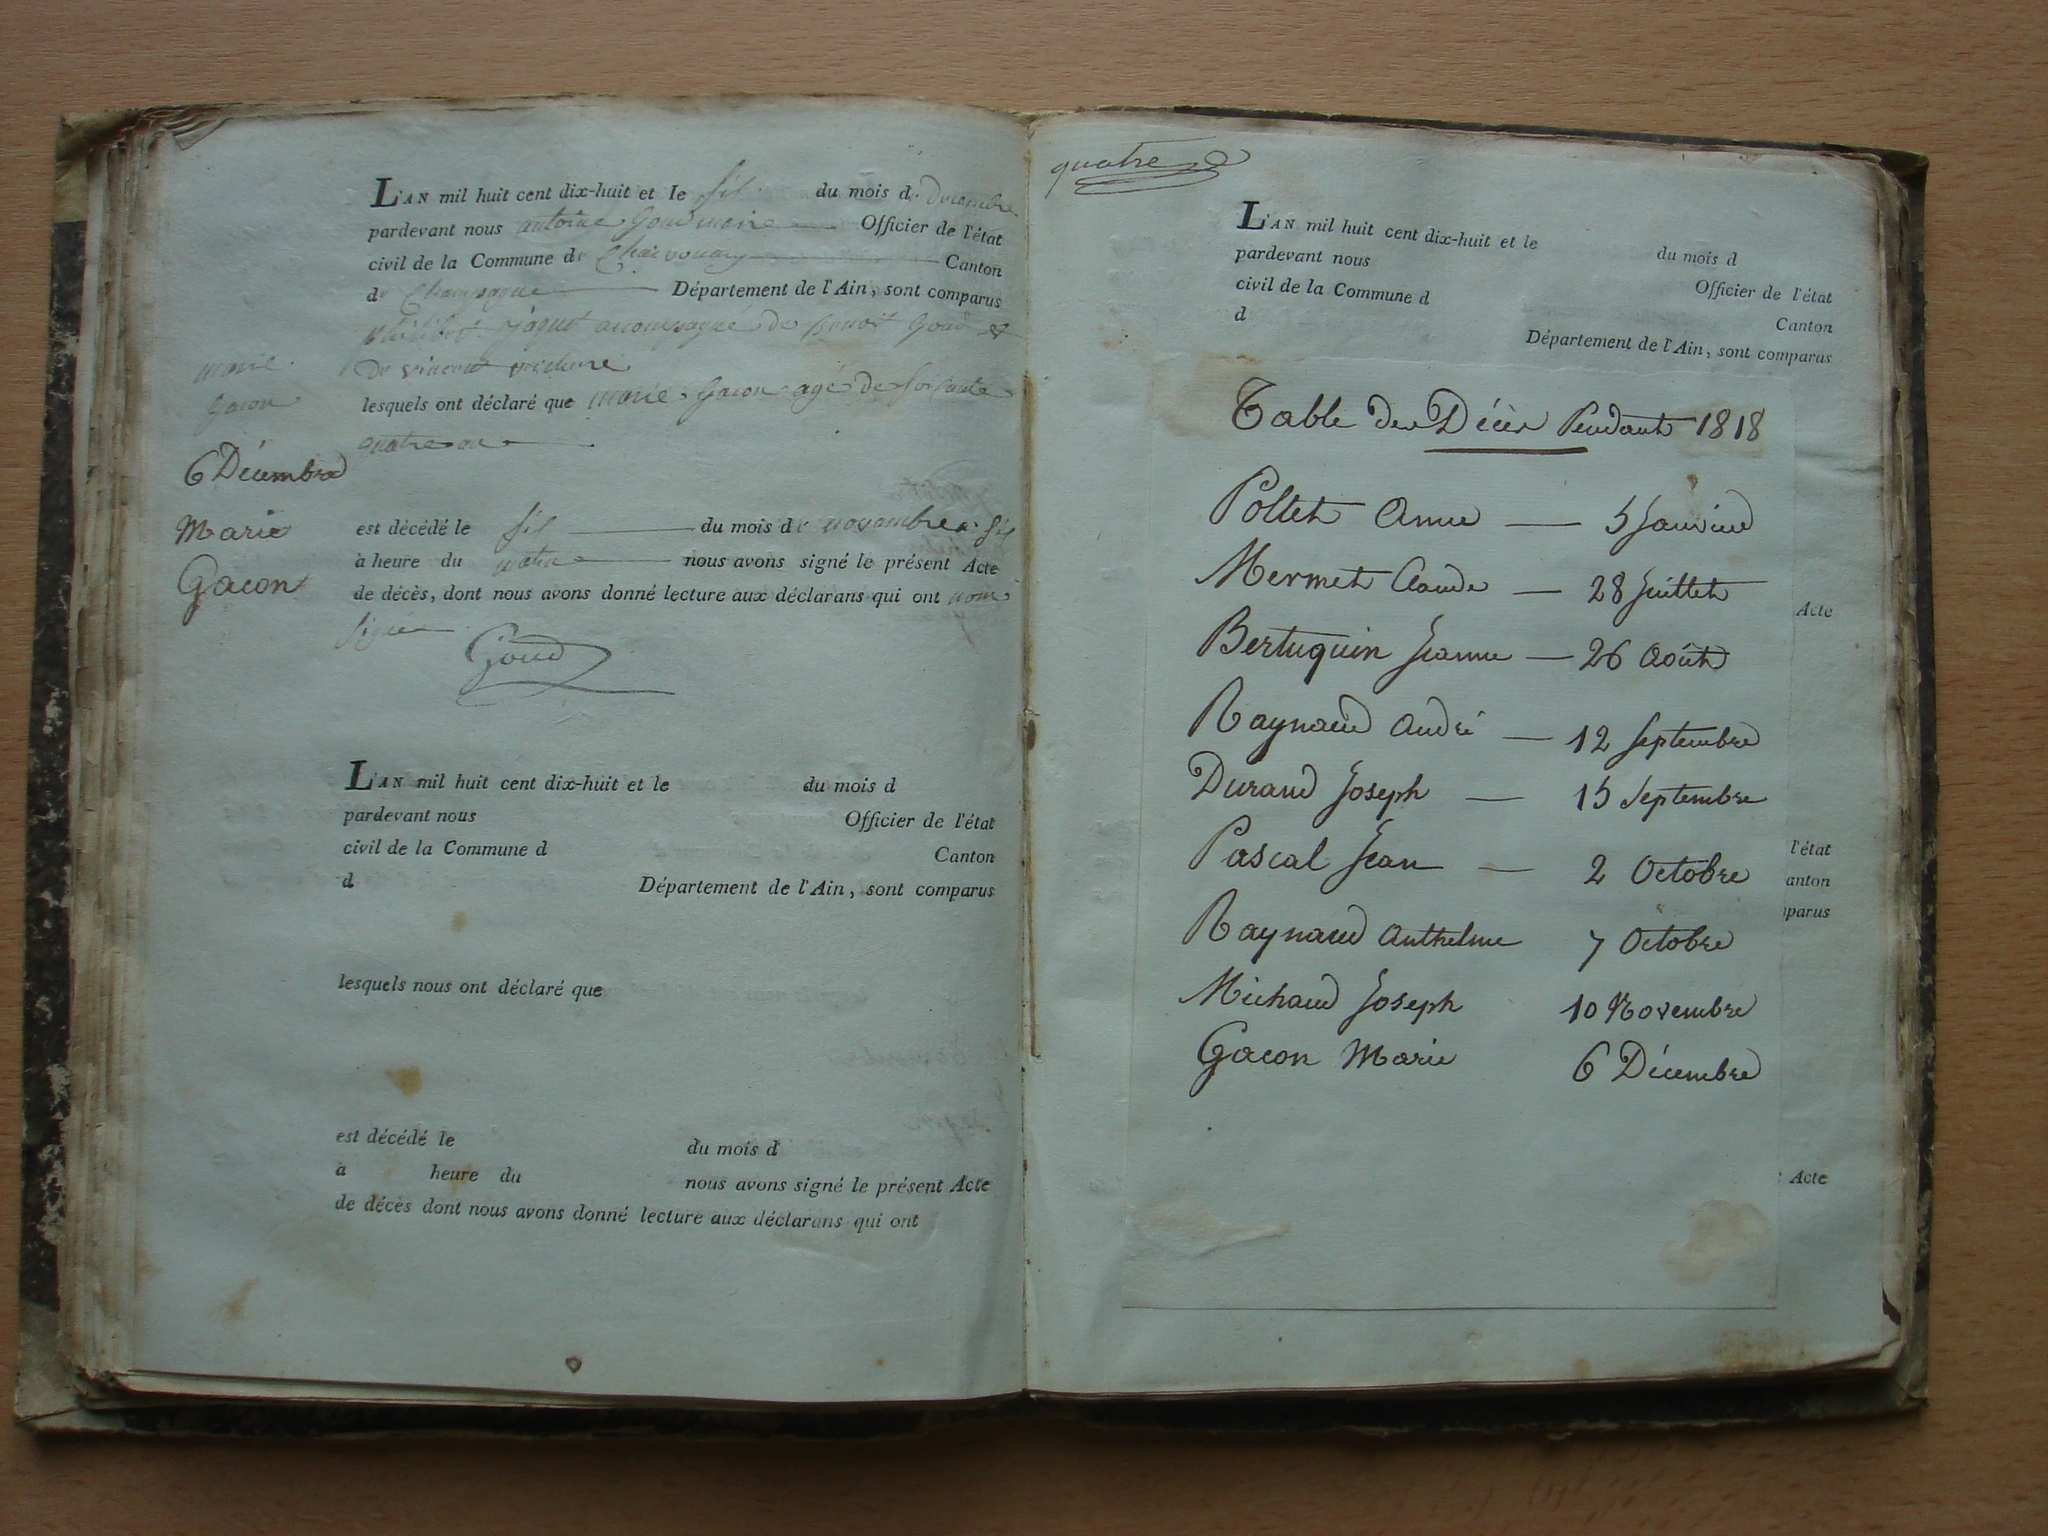 L'AN mil huit cent dix-huit et le six du mois de decembre
pardevant nous antoine Goud maire Officier de l'état
civil de la Commune de Canton
de Champagne Département de l'Ain, sont comparus
accompagné de Benoit Goud &
De vincent
marie
Gacon
lesquels ont déclaré que marie Gacon agé de soisante
quatre an
6 Décembre
Marie
Gacon
est décédé le six du mois de novembre a six
à heure du matin nous avons signé le présent Acte
de décès, dont nous avons donné lecture aux déclarans qui ont non
signé
Goud
L'AN mil huit cent dix-huit et le du mois d
pardevant nous Officier de l'état
civil de la Commune d Canton
d Département de l'Ain, sont comparus
lesquels nous ont déclaré que
est décédé le du mois d
à heure du nous avons signé le présent Acte
de décès dont nous avons donné lecture aux déclarans qui ont
quatre
L'AN mil huit cent dix-huit et le du mois d
pardevant nous Officier de l'état
civil de la Commune d Canton
d Département de l'Ain, sont comparus
Table des Décès Pendant 1818
Pollet Anne — 5 Janvier
Mermet Claude — 28 Juillet
Acte
Bertuquin Jeanne — 26 Août
Raynaud André — 12 Septembre
Durand Joseph — 15 Septembre
Pascal Jean — 2 Octobre
l'état
anton
parus
Raynaud Anthelme 7 Octobre
Michaud Joseph 10 Novembre
Gacon Marie 6 Décembre
Acte